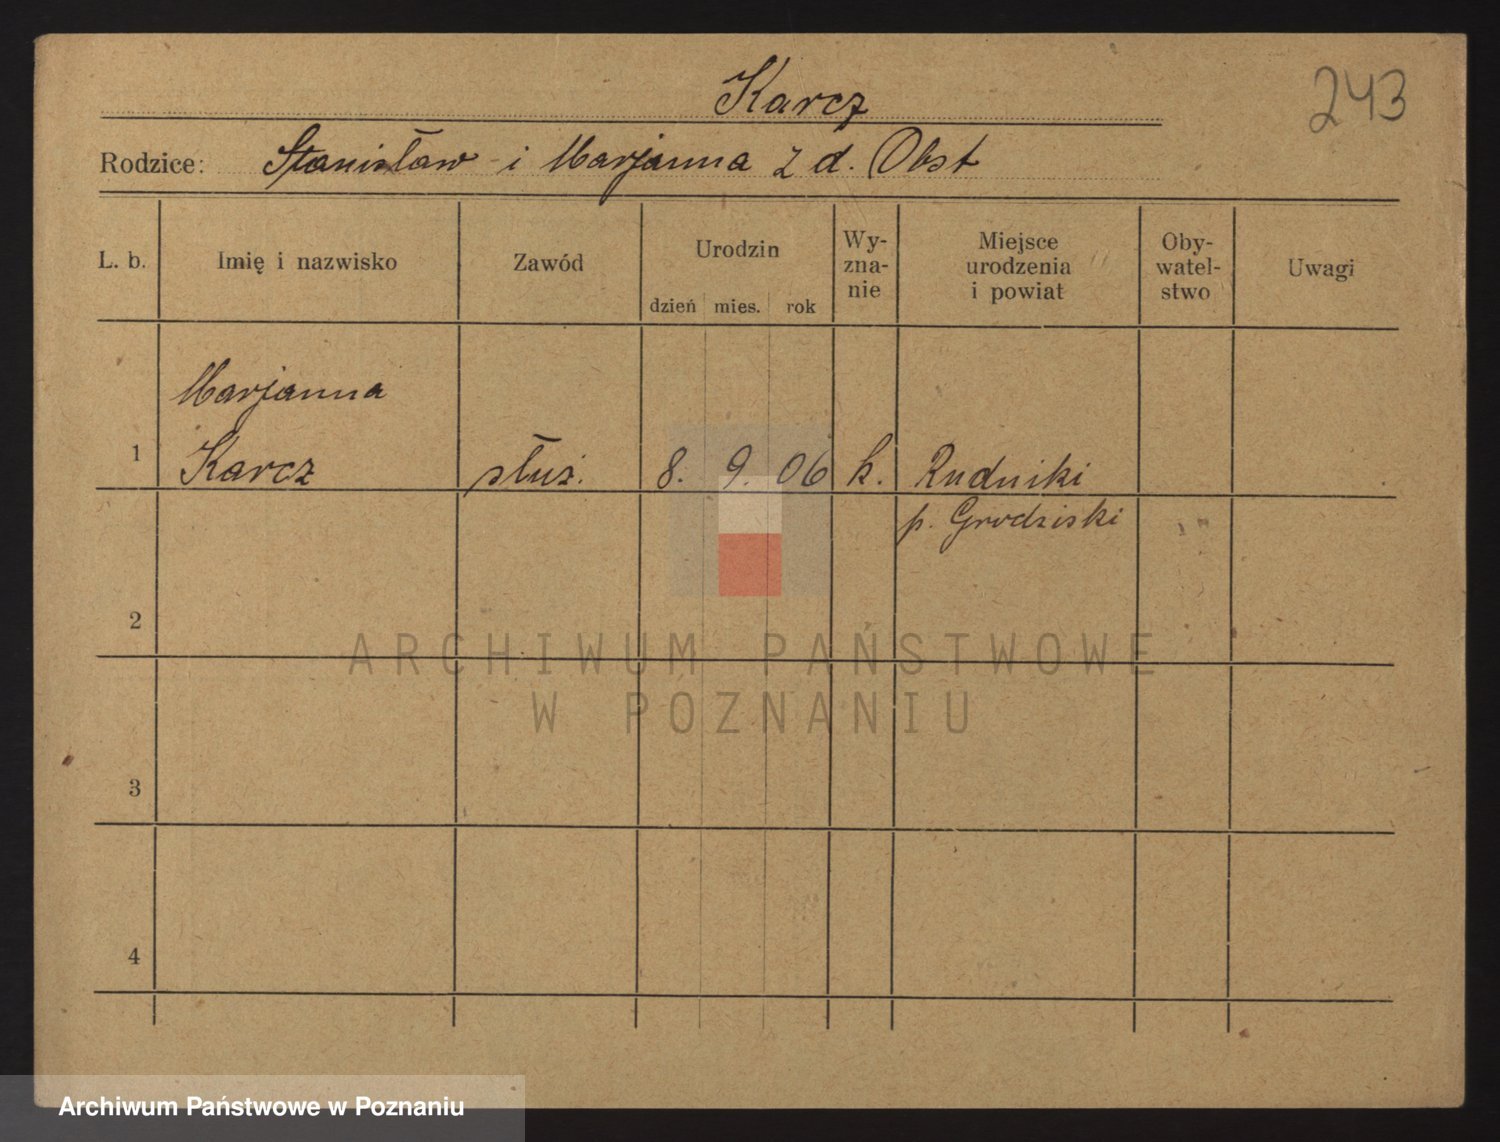 Karcz
243
Rodzice: Stanisław i Marjanna z d. Obst
L. b.
Imię i nazwisko
Zawód
Urodzin
dzień mies. rok
Wy-
zna-
nie
Miejsce
urodzenia
i powiat
Oby-
watel-
stwo
Uwagi
Marjanna
1 Karcz służ. 8. 9. 06 k. Rudniki
p. Grodziski
2
3
4
ARCHIWUM PAŃSTWOWE
W POZNANIU
Archiwum Państwowe w Poznaniu